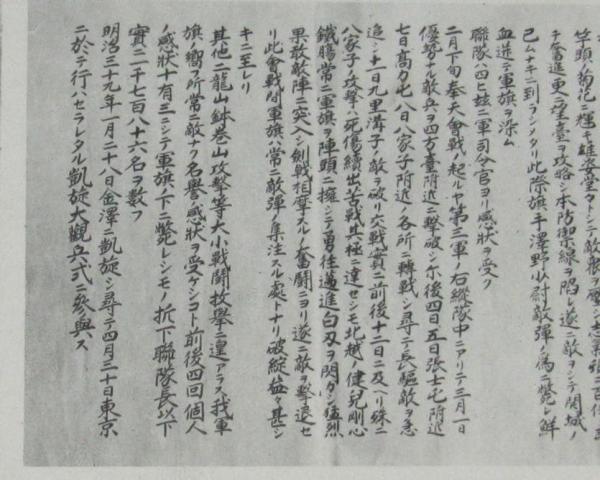 竿頭ノ菊花
チ奮進更ニ望臺ヲ攻略シ本防禦線ヲ陷レ遂ニ敵ヲシテ開城ノ
已ムナキニ到ラシメタリ此際旗手澤野少尉敵彈ノ爲ニ斃レ鮮
血迸テ軍旗ヲ染ム
聯隊ハ已ニ玆ニ軍司令官ヨリ感狀ヲ受ク
二月下旬奉天會戰ノ起ルヤ第三軍ノ右縱隊中ニアリテ三月一日
優勢ナル敵兵ヲ四方臺附近ニ擊破シ尓後四日五日張士屯附近
七日高力屯八日八家子附近ノ各所ニ轉戰シ尋テ長驅敵ヲ急
追シ十一日九里溝子ノ敵ヲ破リ交戰實ニ前後十二日ニ及ヘリ殊ニ
八家子ノ攻擊ハ死傷續出苦戰其極ニ達セシモ北越ノ健兒剛心
鐵膓常ニ軍旗ヲ陣頭ニ擁シテ勇往邁進白刃ヲ閃カシ猛烈
果敢敵陣ニ突入シ劍戟相摩スルノ奮鬪ニヨリ遂ニ敵ヲ擊退セ
リ此會戰間軍旗ハ常ニ敵彈ノ集注スル處トナリ破綻益々甚シ
キニ至レリ
其他二龍山鉢巻山攻擊等大小戰鬪枚擧ニ遑アラス我軍
旗ノ嚮フ所常ニ敵ナク名譽ノ感狀ヲ受ケシコト前後四回個人
ノ感狀十有三ニシテ軍旗ノ下ニ斃レシモノ折下聯隊長以下
實ニ二千七百八十六名ヲ數フ
明治三十九年一月二十八日金澤ニ凱旋シ尋テ四月三十日東京
ニ於テ行ハセラレタル凱旋大觀兵式ニ參與ス